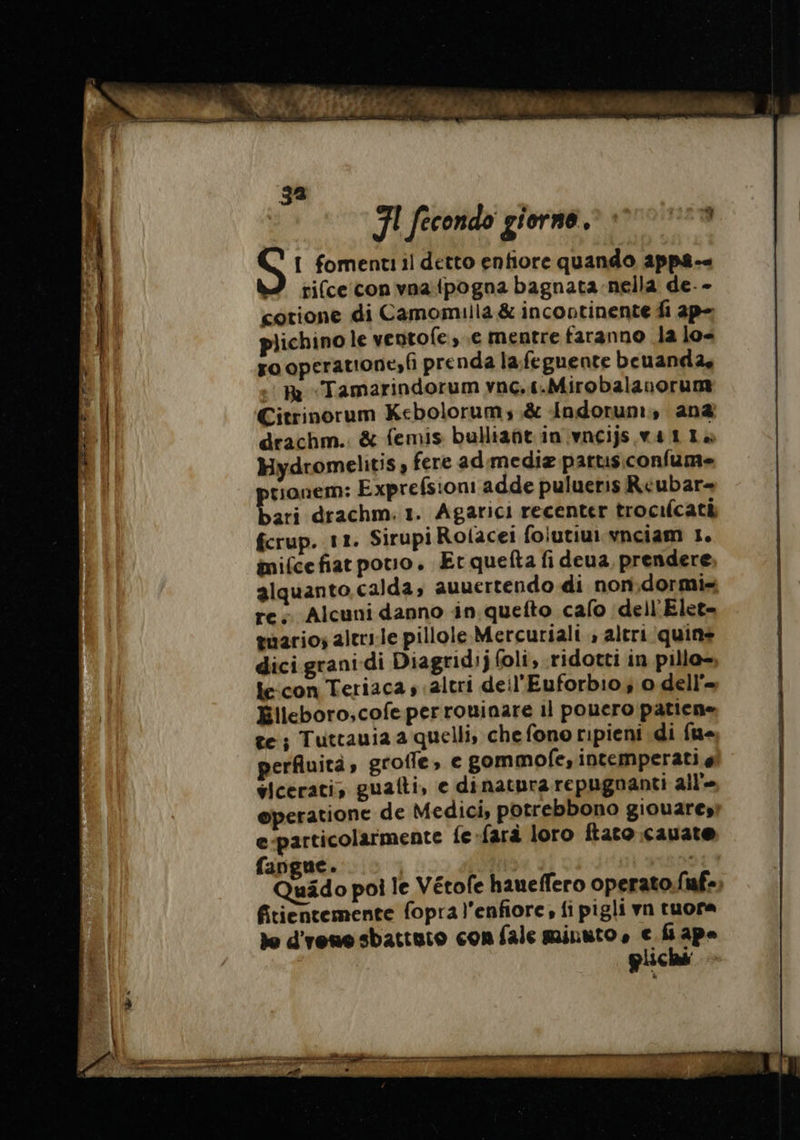 32
Il ſecondo giorno.
SI fomenti il detto enfiore quando appa-
riſce con vna ſpogna bagnata nella de-
cotione di Camomilla & incontinente ſi ap-
plichino le ventoſe, e mentre faranno la lo-
ro operatione, ſi prenda la ſeguente beuanda,
℞ Tamarindorum vnc. 1. Mirobalanorum
Citrinorum Kebolorum, & Indorum, ana
drachm. & ſemis bulliant in vncijs v111.
Hydromelitis, fere ad mediæ partis conſum-
ptionem: Expreſsioni adde pulueris Reubar-
bari drachm. 1. Agarici recenter trociſcati
ſcrup. 11. Sirupi Roſacei ſolutiui vnciam 1.
miſce fiat potio. Et queſta ſi deua prendere
alquanto calda, auuertendo di non dormi-
re. Alcuni danno in queſto caſo dell'Elet-
tuario; altri le pillole Mercuriali, altri quin-
dici grani di Diagridij ſoli, ridotti in pillo-
le con Teriaca, altri dell'Euforbio, o dell'-
Elleboro, coſe per rouinare il pouero patien-
te; Tuttauia a quelli, che ſono ripieni di ſu-
perfluità, groſſe, e gommoſe, intemperati,
vlcerati, guaſti, e di natura repugnanti all'-
operatione de Medici, potrebbono giouare,
e particolarmente ſe ſarà loro ſtato cauato
ſangue.
Quādo poi le Vētoſe haueſſero operato ſuf-
fitientemente ſopra l'enfiore, ſi pigli vn tuor-
lo d'vouo sbattuto con ſale minuto, e ſi ap-
pliche